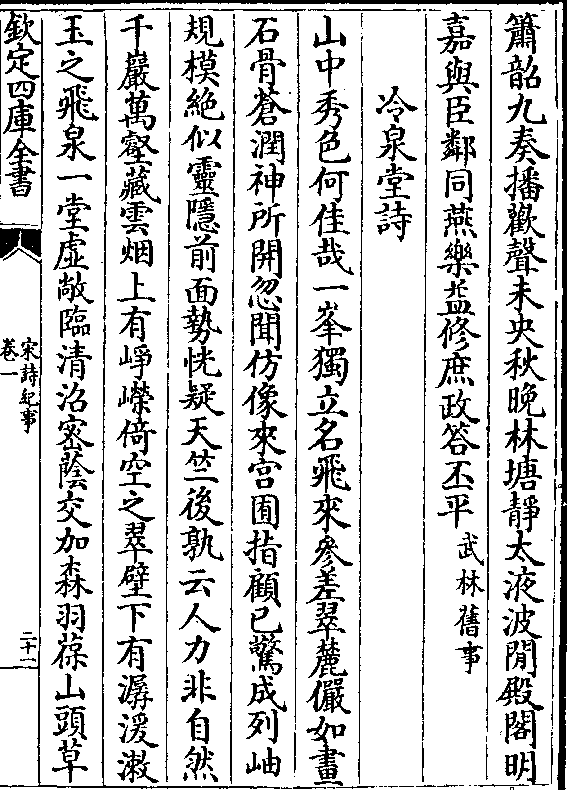 簫韶九奏播歡聲未央秋晚林塘靜太液波閒殿閣明
嘉與臣鄰同燕樂益修庶政答丕平武林舊事
冷泉堂詩
山中秀色何佳哉一峯獨立名飛來參差翠麓儼如畫
石骨蒼潤神所開忽聞仿像來宮囿指顧已驚成列岫
規模絶似靈隱前面勢恍疑天竺後孰云人力非自然
千巖萬壑藏雲烟上有崢嶸倚空之翠壁下有潺湲漱
玉之飛泉一堂虛敞臨清沼密蔭交加森羽葆山頭草
欽定四庫全書
宋詩紀事
卷一
二十二